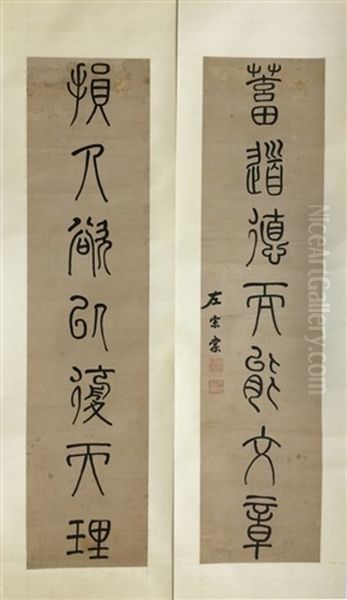 蓄道德而能文章
左宗棠
損人欲以復天理
NiceArtGallery.com